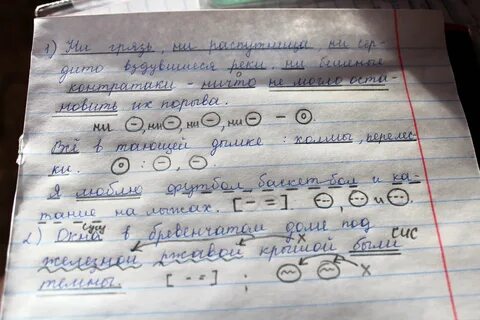 1) Ни грязь, ни распутница, ни сер-
дито вздувшиеся реки, ни бешеные
контратаки - ничто не могло оста-
новить их порыва.
ни ⊖, ни ⊖, ни ⊖, ни ⊖ - О.
Всё в тающей дымке : холмы, перелес-
ки. О : ⊖, ⊖.
Я люблю футбол, баскет-бол и ка-
тание на лыжах. [ - = ] ⊖, ⊖ и ⊖.
сущ
2) Окна в бревенчатом доме под
х сис
железной ржавой крышой были
темны. [ - = ] ; х